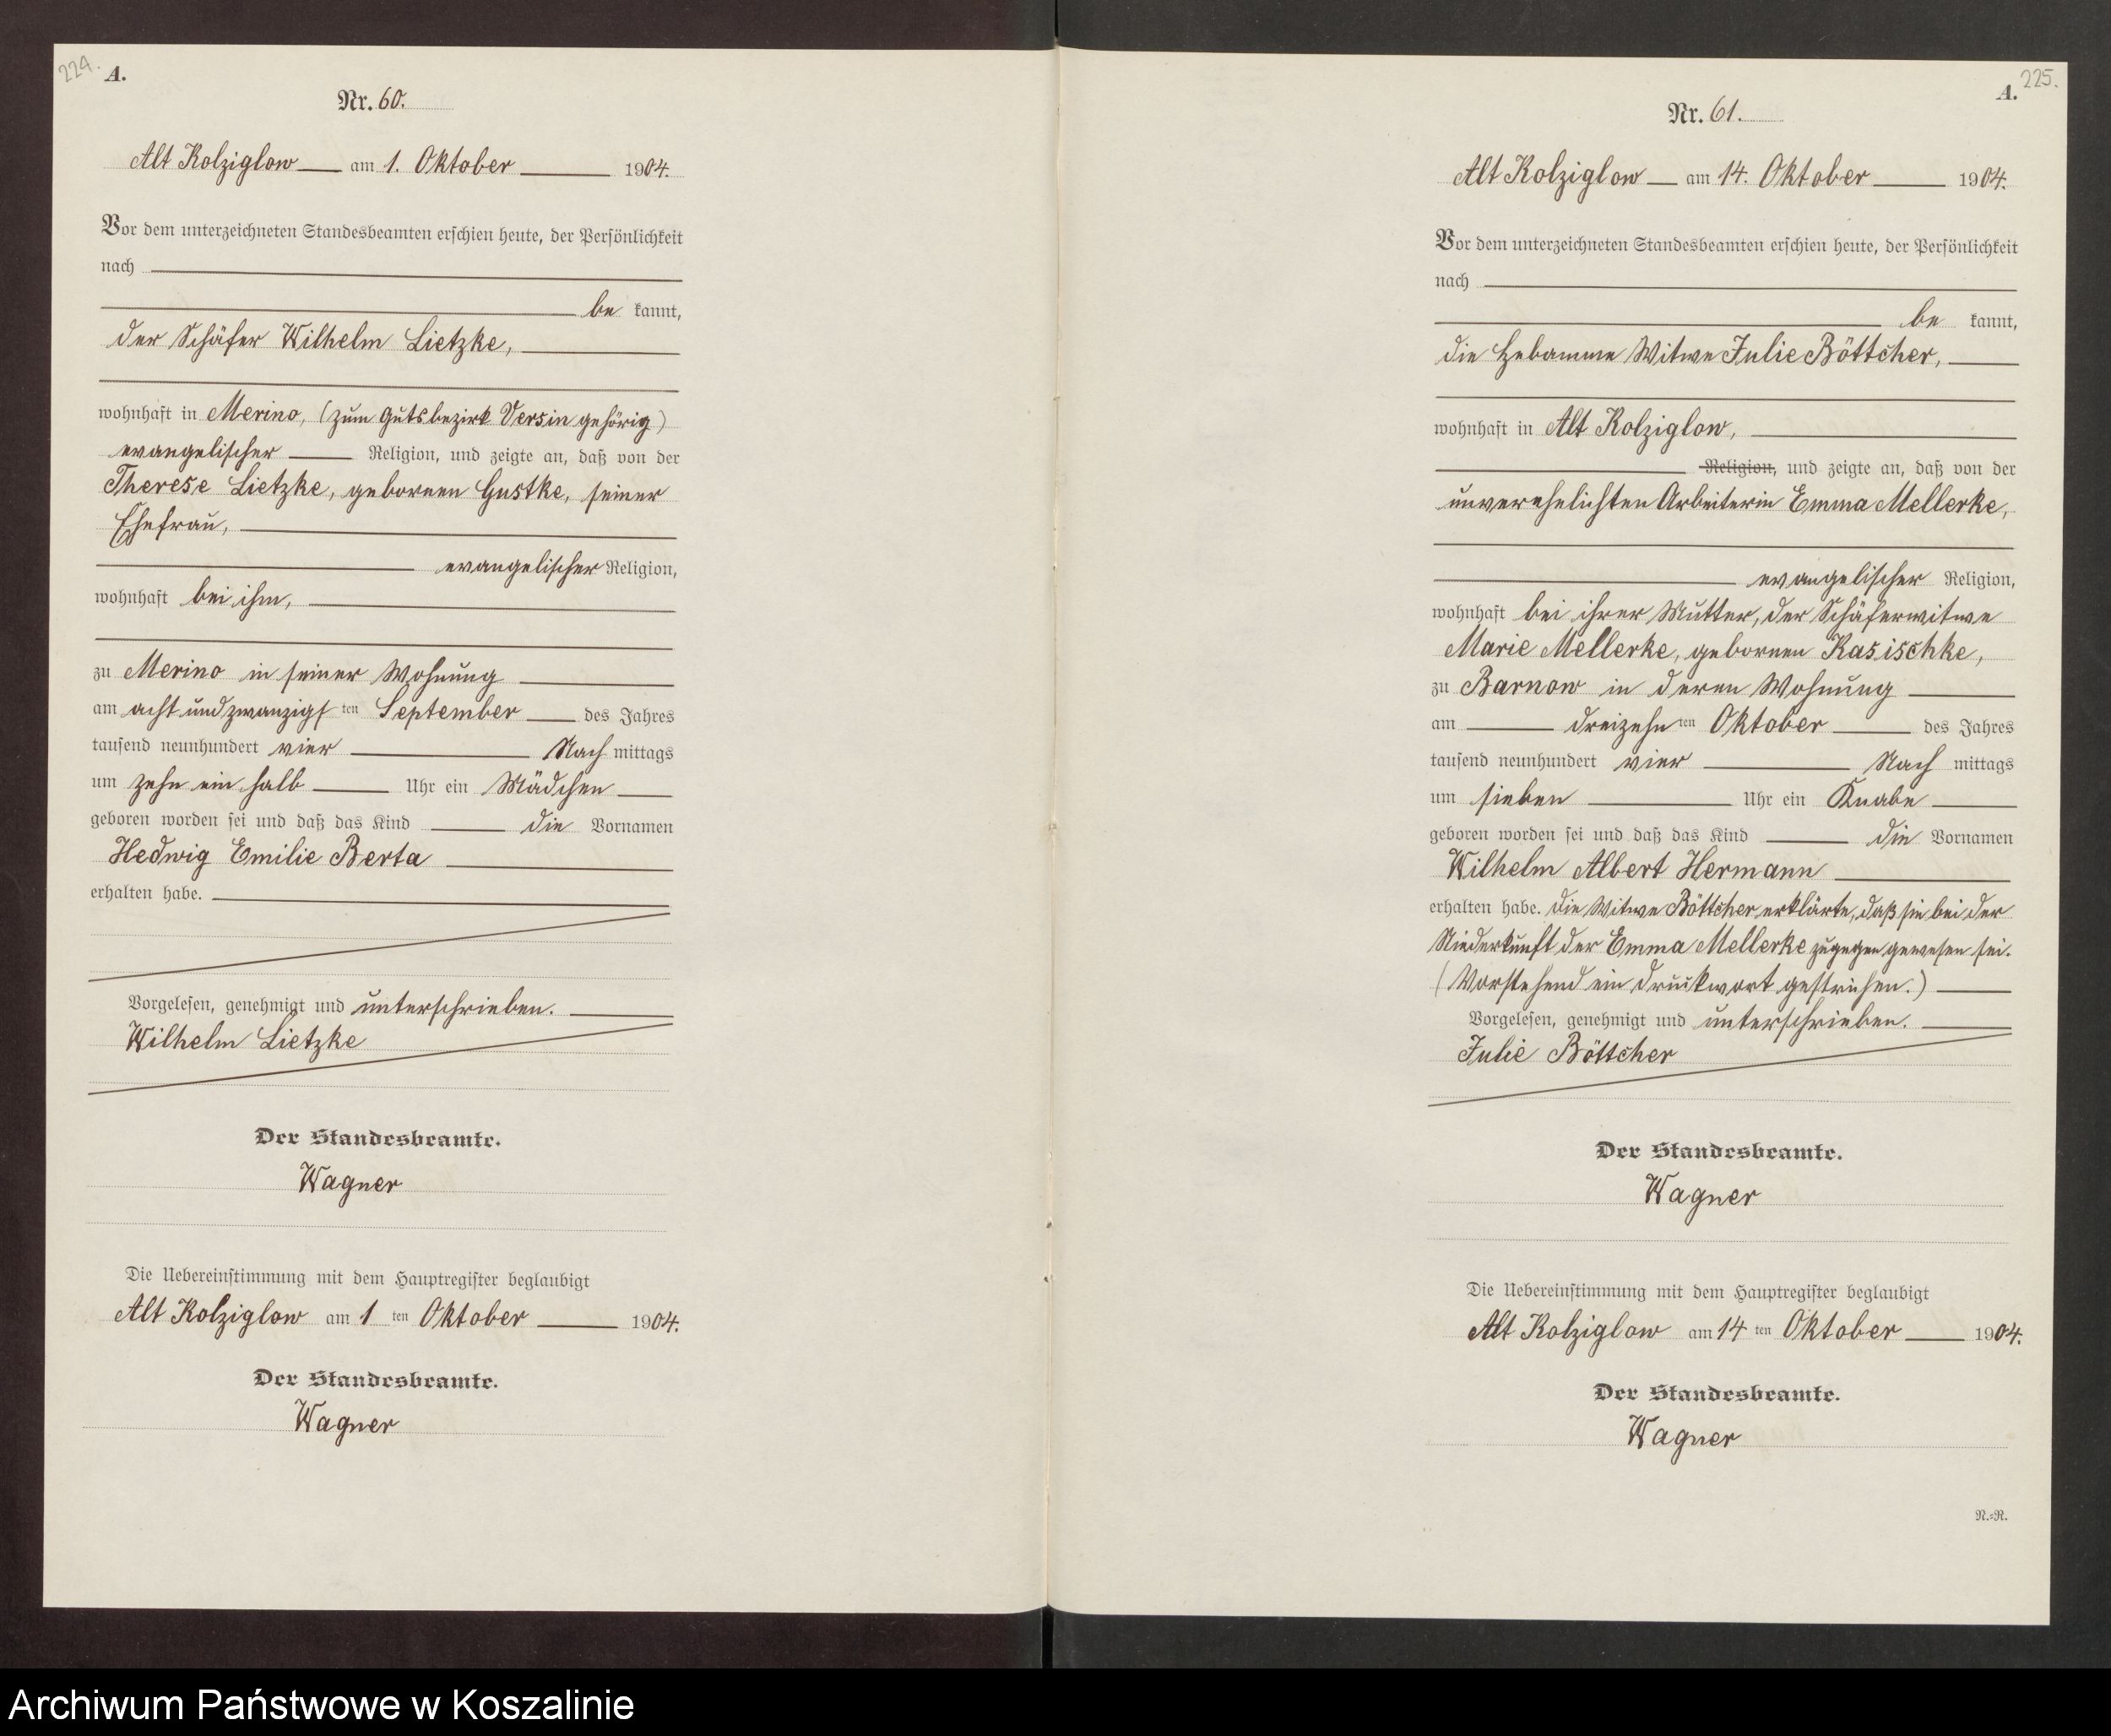 224.
A.
Nr. 60.
Alt Kolziglow am 1. Oktober 1904.
Vor dem unterzeichneten Standesbeamten erschien heute, der Persönlichkeit
nach
be kannt,
der Schäfer Wilhelm Lietzke,
wohnhaft in Merino, (zum Gutsbezirk Versin gehörig)
evangelischer Religion, und zeigte an, daß von der
Therese Lietzke, geborenen Gustke, seiner
Ehefrau,
evangelischer Religion,
wohnhaft bei ihm,
zu Merino in seiner Wohnung
am acht und zwanzigsten September des Jahres
tausend neunhundert vier Nach mittags
um zehn ein halb Uhr ein Mädchen
geboren worden sei und daß das Kind die Vornamen
Hedwig Emilie Berta
erhalten habe.
Vorgelesen, genehmigt und unterschrieben.
Wilhelm Lietzke
Der Standesbeamte.
Wagner
Die Uebereinstimmung mit dem Hauptregister beglaubigt
Alt Kolziglow am 1 ten Oktober 1904.
Der Standesbeamte.
Wagner
225.
A.
Nr. 61.
Alt Kolziglow am 14. Oktober 1904.
Vor dem unterzeichneten Standesbeamten erschien heute, der Persönlichkeit
nach
be kannt,
die Hebamme Witwe Julie Böttcher,
wohnhaft in Alt Kolziglow,
Religion, und zeigte an, daß von der
unverehelichten Arbeiterin Emma Mellerke,
evangelischer Religion,
wohnhaft bei ihrer Mutter, der Schäferwitwe
Marie Mellerke, geborenen Kasischke,
zu Barnow in deren Wohnung
am dreizehn ten Oktober des Jahres
tausend neunhundert vier Nach mittags
um sieben Uhr ein Knabe
geboren worden sei und daß das Kind die Vornamen
Wilhelm Albert Hermann
erhalten habe. Die Witwe Böttcher erklärte, daß sie bei der
Niederkunft der Emma Mellerke zugegen gewesen sei.
(Vorstehend ein Druckwort gestrichen.)
Vorgelesen, genehmigt und unterschrieben.
Julie Böttcher
Der Standesbeamte.
Wagner
Die Uebereinstimmung mit dem Hauptregister beglaubigt
Alt Kolziglow am 14 ten Oktober 1904.
Der Standesbeamte.
Wagner
N.-R.
Archiwum Państwowe w Koszalinie